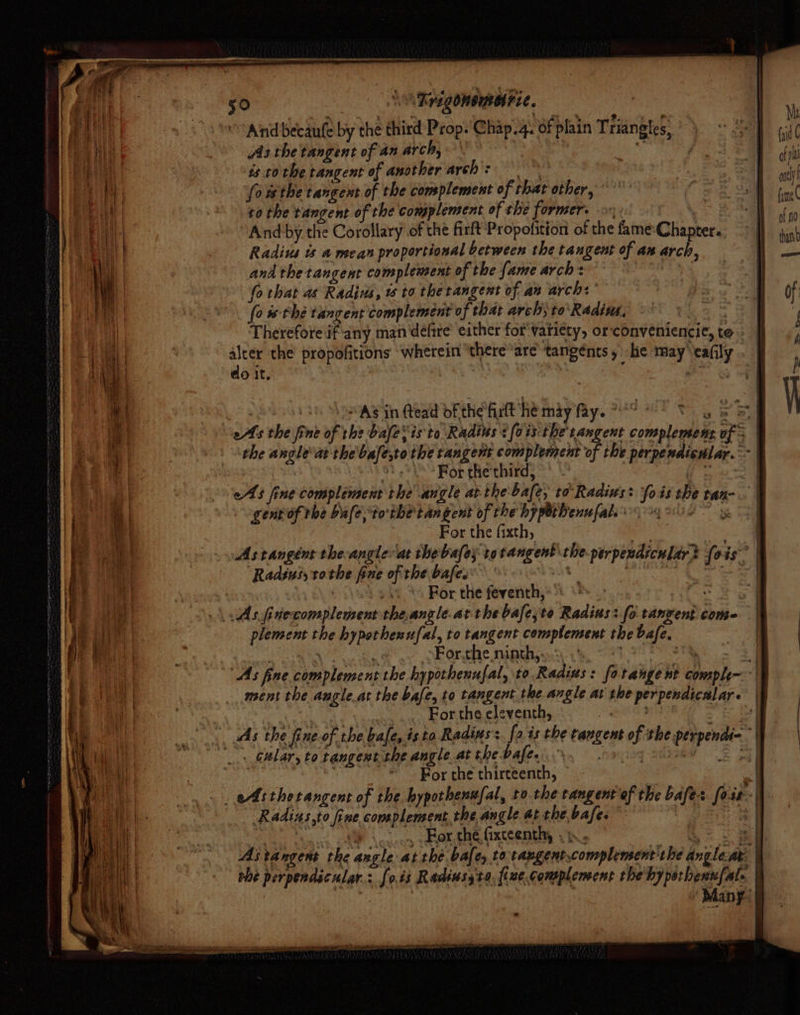 50 Trigonometrie.
And becauſe by the third Prop. Chap. 4. of plain Triangles,
As the tangent of an arch,
is to the tangent of another arch:
ſo is the tangent of the complement of that other,
to the tangent of the complement of the former.
And by the Corollary of the firſt Propoſition of the ſame Chapter.
Radius is a mean proportional between the tangent of an arch,
and the tangent complement of the ſame arch:
ſo that as Radius, is to the tangent of an arch:
ſo is the tangent complement of that arch, to Radius.
Therefore if any man deſire either for variety, or conveniencie, to
alter the propoſitions wherein there are tangents, he may eaſily
do it.
As in ſtead of the firſt he may ſay.
As the ſine of the baſe, is to Radius: ſo is the tangent complement of
the angle at the baſe, to the tangent complement of the perpendicular.
For the third,
As ſine complement the angle at the baſe, to Radius: ſo is the tan-
gent of the baſe, to the tangent of the hypothenuſal.
For the ſixth,
As tangent the angle at the baſe, to tangent the perpendicular: ſo is
Radius, to the ſine of the baſe.
For the ſeventh,
As ſine complement the angle at the baſe, to Radius: ſo tangent com-
plement the hypothenuſal, to tangent complement the baſe.
For the ninth,
As ſine complement the hypothenuſal, to Radius: ſo tangent comple-
ment the angle at the baſe, to tangent the angle at the perpendicular.
For the eleventh,
As the ſine of the baſe, is to Radius: ſo is the tangent of the perpendi-
cular, to tangent the angle at the baſe.
For the thirteenth,
As the tangent of the hypothenuſal, to the tangent of the baſe: ſo is
Radius, to ſine complement the angle at the baſe.
For the ſixteenth,
As tangent the angle at the baſe, to tangent complement the angle at
the perpendicular: ſo is Radius, to ſine complement the hypothenuſal.
Many